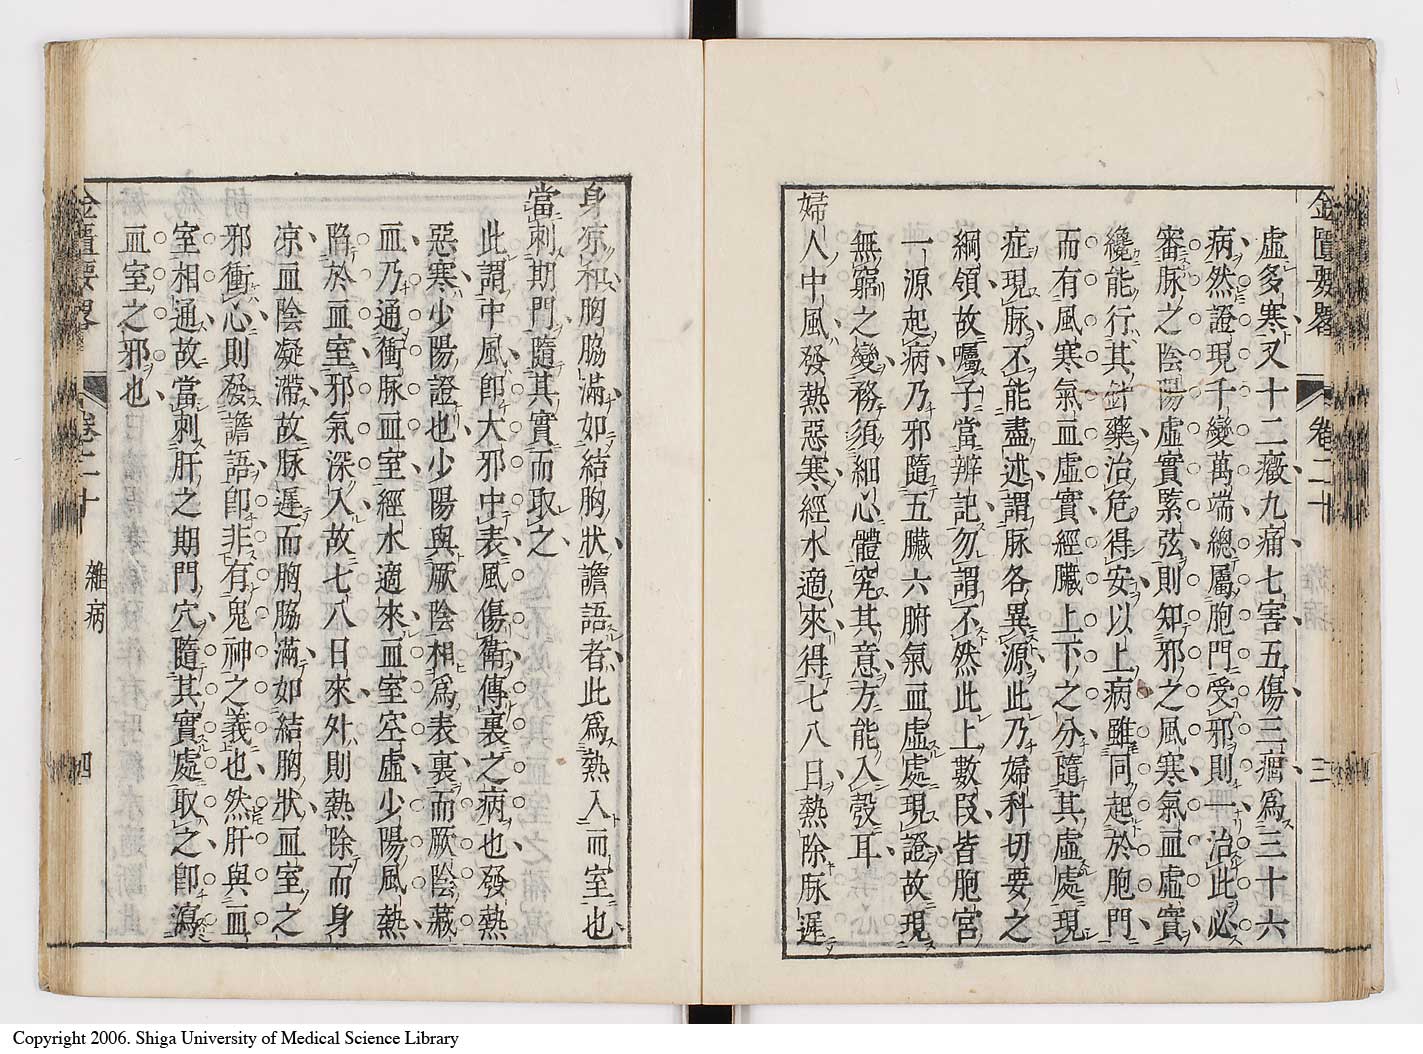 金匱要畧 卷二十 三
虛多寒又十二癥九痛七害五傷三痼爲三十六
病然證現千變萬端總屬胞門受邪則一治此必
審脉之陰陽虛實緊弦則知邪之風寒氣血虛實
纔能行其針藥治危得安以上病雖同起於胞門
而有風寒氣血虛實經臟上下之分隨其虛處現
症現脉不能盡述謂脉各異源此乃婦科切要之
綱領故囑子當辨記勿謂不然此上數段皆胞宮
一源起病乃邪隨五臟六腑氣血虛處現證故現
無窮之變務須細心體究其意方能入彀耳
婦人中風發熱惡寒經水適來得七八日熱除脉遲
身凉和胸脇滿如結胸狀譫語者此爲熱入血室也
當刺期門隨其實而取之
此謂中風卽大邪中表風傷衛傳裏之病也發熱
惡寒少陽證也少陽與厥陰相爲表裏而厥陰藏
血乃通衝脉血室經水適來血室空虛少陽風熱
陷於血室邪氣深入故七八日來外則熱除而身
凉血陰凝滯故脉遲而胸脇滿如結胸狀血室之
邪衝心則發譫語卽非有鬼神之義也然肝與血
室相通故當刺肝之期門穴隨其實處取之卽瀉
血室之邪也
金匱要畧 卷二十 雜病 四
Copyright 2006. Shiga University of Medical Science Library